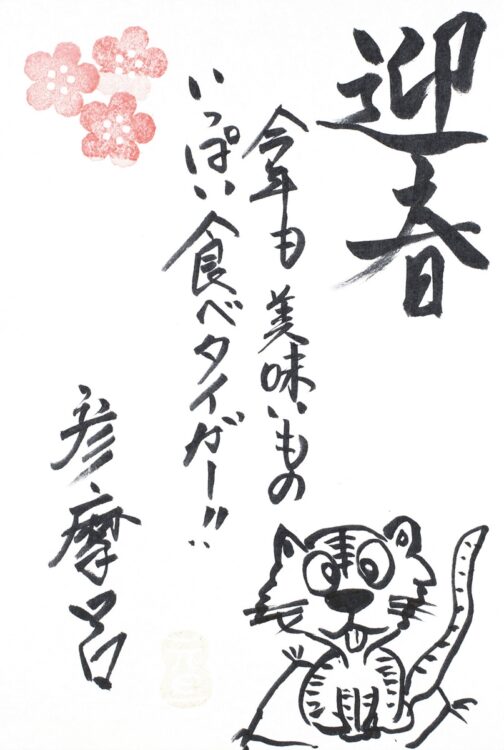 迎春
今年も美味いもの
いっぱい食べタイガー!!
彦摩呂